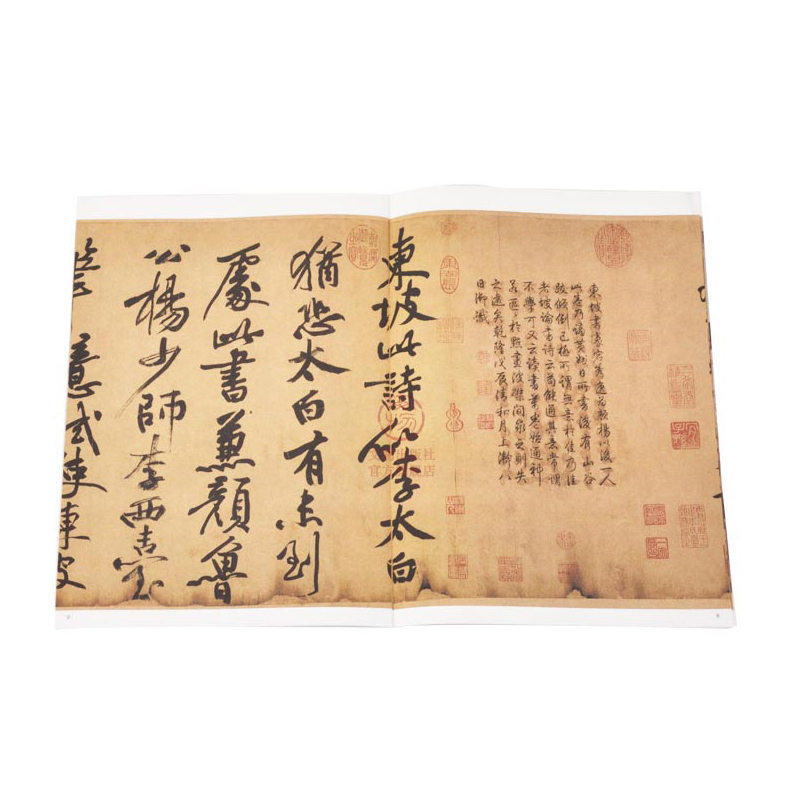 東坡書豪宕秀逸為顏楊以後一人
此卷乃謫黃州日所書後有山谷
跋傾倒已極所謂無意於佳乃佳
者坡論書詩云苟能通其意常謂
不學可又云讀書萬卷始通神
若區〻於點畫波磔間求之則失
之遠矣乾隆戊辰清和月上澣八
日御識
東坡此詩似李太白
猶恐太白有未到
處此書兼顏魯
公楊少師李西臺
筆意試使東坡